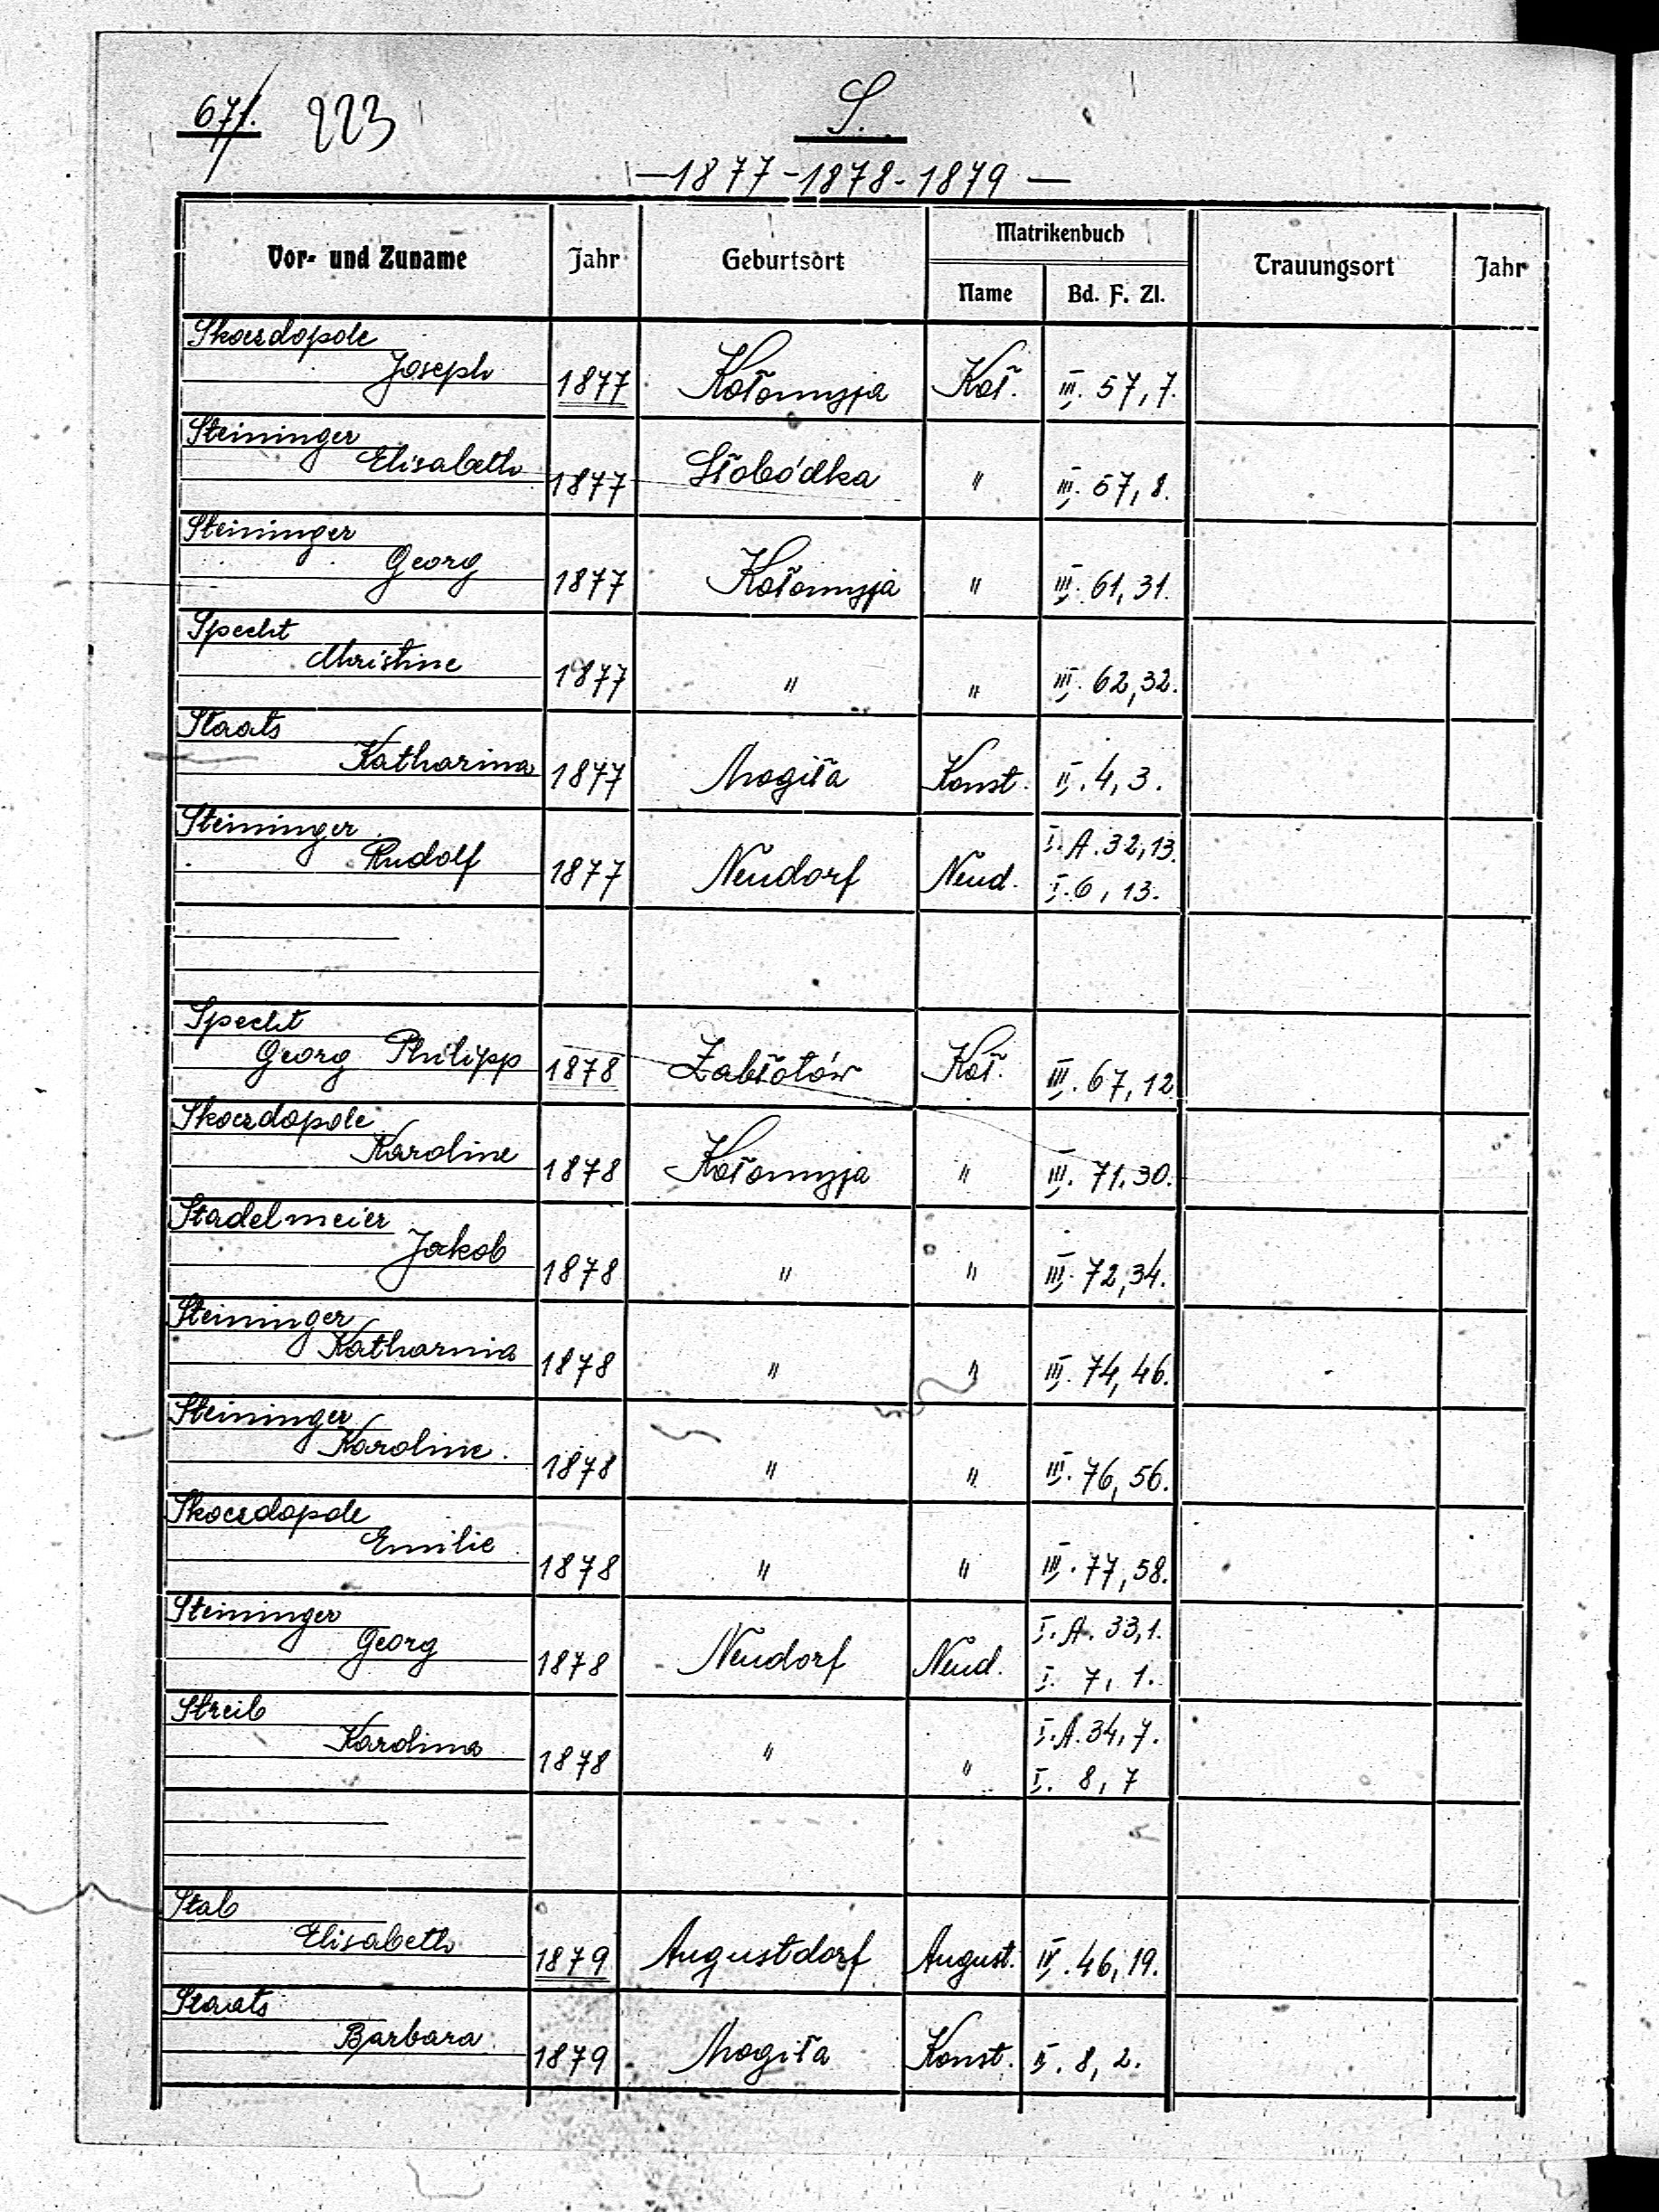 671. 223 S.
— 1877 - 1878 - 1879 —
Vor- und Zuname Jahr Geburtsort Matrikenbuch Trauungsort Jahr
Name Bd. F. Zl.
Skoerdopole
Joseph 1877 Kołomyja Koł. III. 57, 7.
Steininger
Elisabeth 1877 Słobódka " III. 57, 8.
Steininger
Georg 1877 Kołomyja " III. 61, 31.
Specht
Christine 1877 " " III. 62, 32.
Staats
Katharina 1877 Mogiła Konst. II. 4, 3.
Steininger I. A. 32, 13.
Rudolf 1877 Neudorf Neud. I. 6, 13.
Specht
Georg Philipp 1878 Zabłotów Koł. III. 67, 12
Skoerdopole
Karoline 1878 Kołomyja " III. 71. 30.
Stadelmeier
Jakob 1878 " " III. 72, 34.
Steininger
Katharina 1878 " " III. 74, 46.
Steininger
Karoline. 1878 " " III. 76, 56.
Skoerdopole
Emilie 1878 " " III. 77, 58.
Steininger I. A. 33, 1.
Georg 1878 Neudorf Neud. I. 7, 1.
Streib I. A. 34, 7.
Karolina 1878 " " I. 8, 7
Stab
Elisabeth 1879 Augustdorf August. IV. 46, 19.
Staats
Barbara 1879 Mogiła Konst. II. 8, 2.